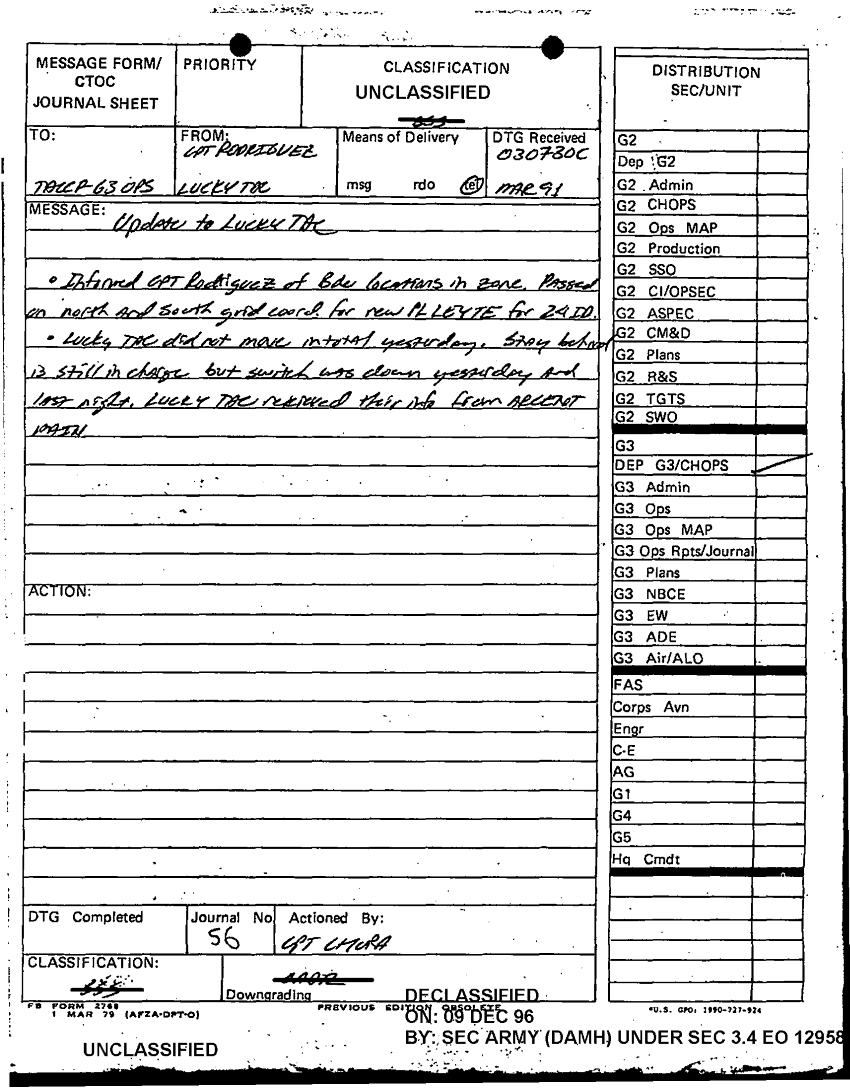 MESSAGE FORM/
CTOC
JOURNAL SHEET
PRIORITY
CLASSIFICATION
UNCLASSIFIED
TO:
TACCP-G3 OPS
FROM:
CPT RODRIGUEZ
LUCKY TAC
Means of Delivery
msg rdo tel
DTG Received
030730C
MAR 91
MESSAGE:
Update to Lucky TAC
• Informed CPT Rodriguez of Bde locations in zone. Passed
on north and south grid coord. for new PL LEYTE for 24 ID.
• Lucky TAC did not move in total yesterday. Stay behind
is still in charge but switch was down yesterday and
last night. Lucky TAC received their info from ARCENT
MAIN
ACTION:
DTG Completed
Journal No
56
Actioned By:
CPT
CLASSIFICATION:
Downgrading
FB FORM 2768
1 MAR 79 (AFZA-DPT-O)
PREVIOUS EDITION OBSOLETE
DECLASSIFIED
ON: 09 DEC 96
BY: SEC ARMY (DAMH) UNDER SEC 3.4 EO 12958
UNCLASSIFIED
DISTRIBUTION
SEC/UNIT
G2
Dep G2
G2 Admin
G2 CHOPS
G2 Ops MAP
G2 Production
G2 SSO
G2 CI/OPSEC
G2 ASPEC
G2 CM&D
G2 Plans
G2 R&S
G2 TGTS
G2 SWO
G3
DEP G3/CHOPS
G3 Admin
G3 Ops
G3 Ops MAP
G3 Ops Rpts/Journal
G3 Plans
G3 NBCE
G3 EW
G3 ADE
G3 Air/ALO
FAS
Corps Avn
Engr
C-E
AG
G1
G4
G5
Hq Cmdt
*U.S. GPO: 1990-727-924